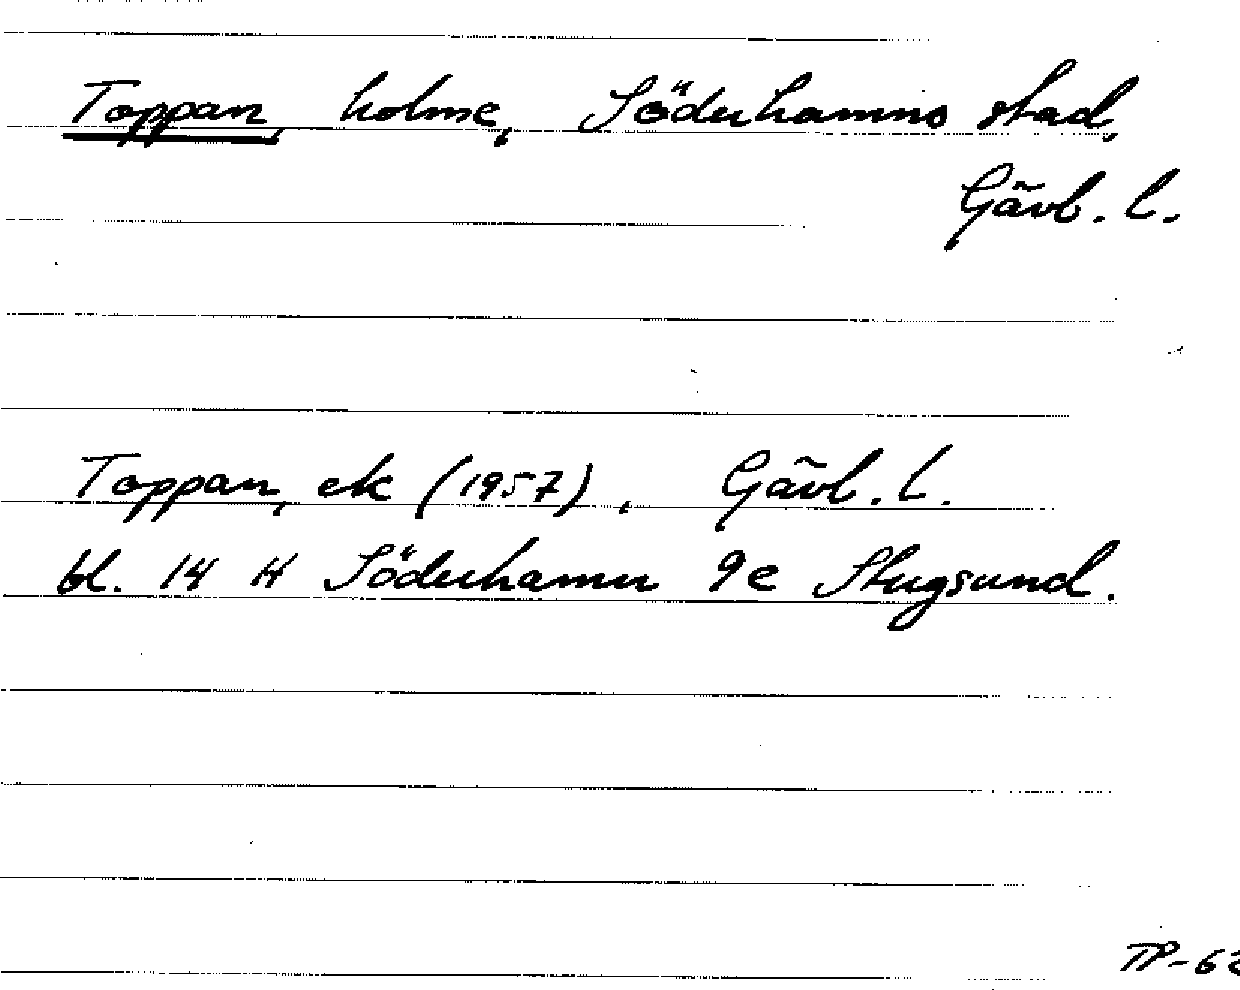 Toppan, holme, Söderhamns stad,
Gävl. l.
Toppan, ek (1957), Gävl. l.
bl. 14 H Söderhamn 9e Stugsund.